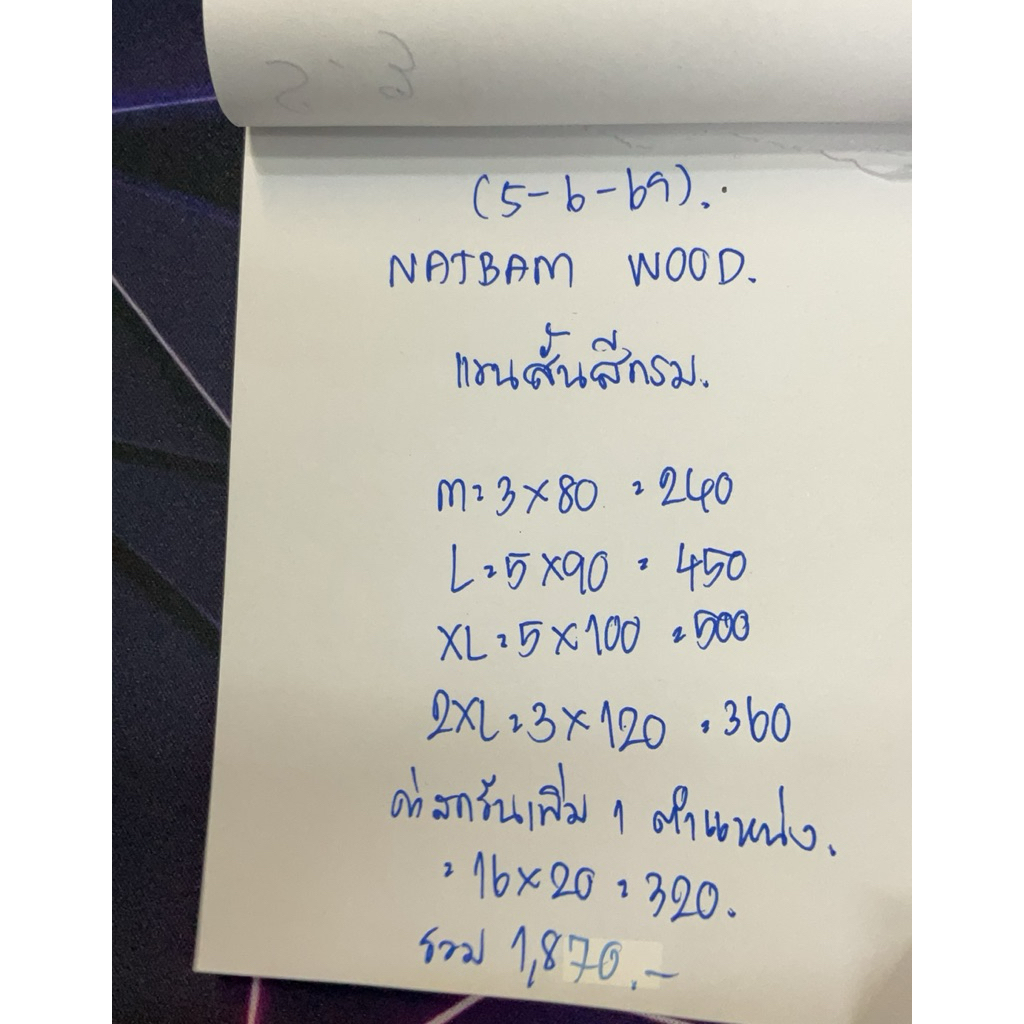 (5-6-69).
NATBAM WOOD.
แขนสั้นสีกรม.
M=3×80 =240
L=5×90 = 450
XL=5×100 =500
2XL=3×120 =360
ค่าสกรีนเพิ่ม 1 ตำแหน่ง.
=16×20 =320.
รวม 1,870.-